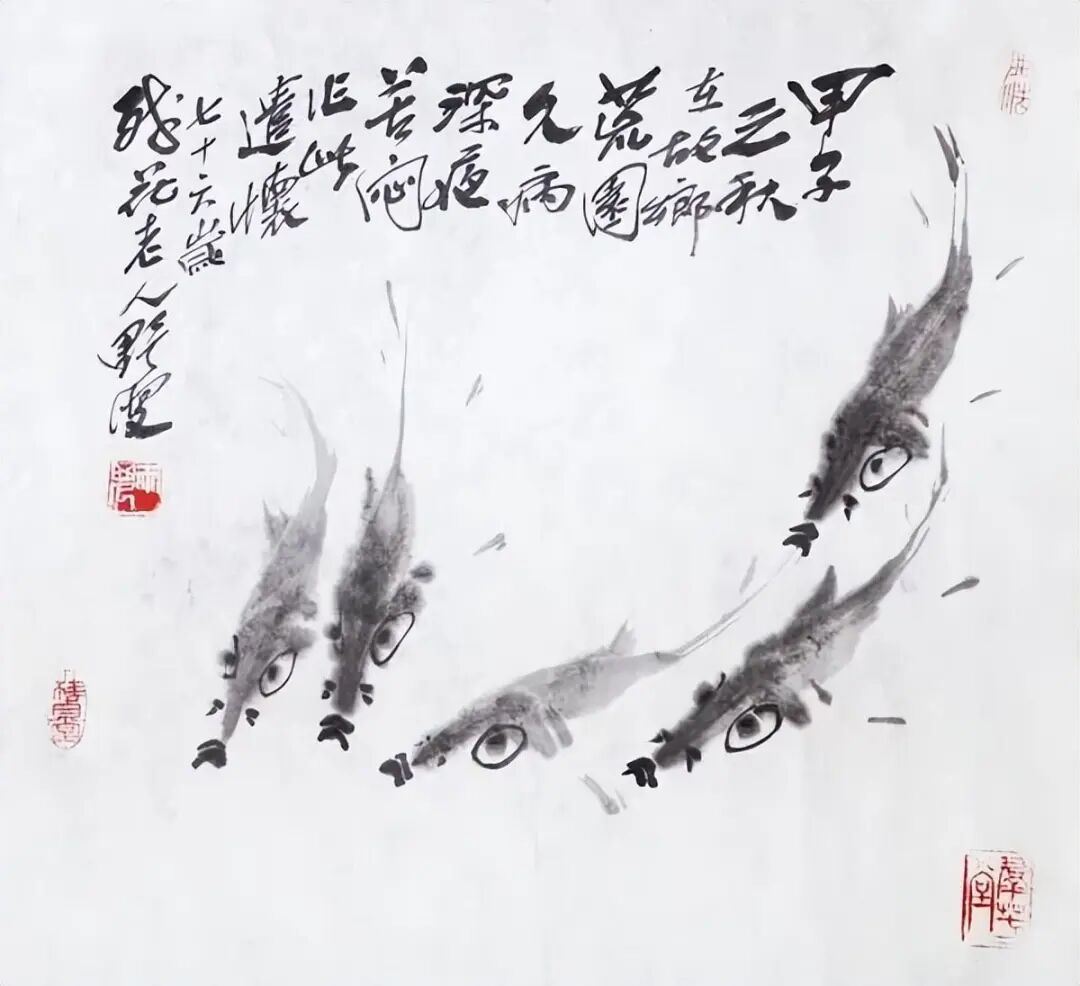 甲子
之秋
在故鄉
荒園
久病
深
苦悶
作此
遣懷
七十六歲
残花老人野